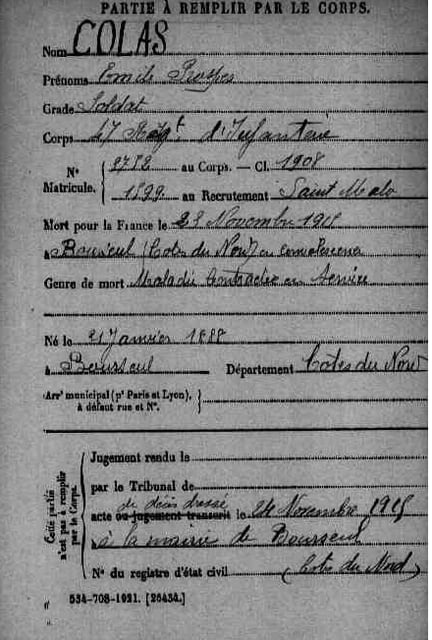 PARTIE À REMPLIR PAR LE CORPS.
Nom COLAS
Prénoms Emile Prosper
Grade Soldat
Corps 47 Régt d'Infanterie
N° Matricule. 2782 au Corps. — Cl. 1908
1599 au Recrutement Saint Malo
Mort pour la France le 23 Novembre 1915
à Bourseul (Cotes du Nord) en convalescence
Genre de mort Maladie Contractée en Service
Né le 21 Janvier 1888
à Bourseul Département Cotes du Nord
Arrt municipal (pr Paris et Lyon),
à défaut rue et N°.
Cette partie n'est pas à remplir par le Corps.
Jugement rendu le
par le Tribunal de
de décès dressé
acte ou jugement transcrit le 24 Novembre 1915
à la mairie de Bourseul
N° du registre d'état civil (Cotes du Nord)
534-708-1921. [26434.]